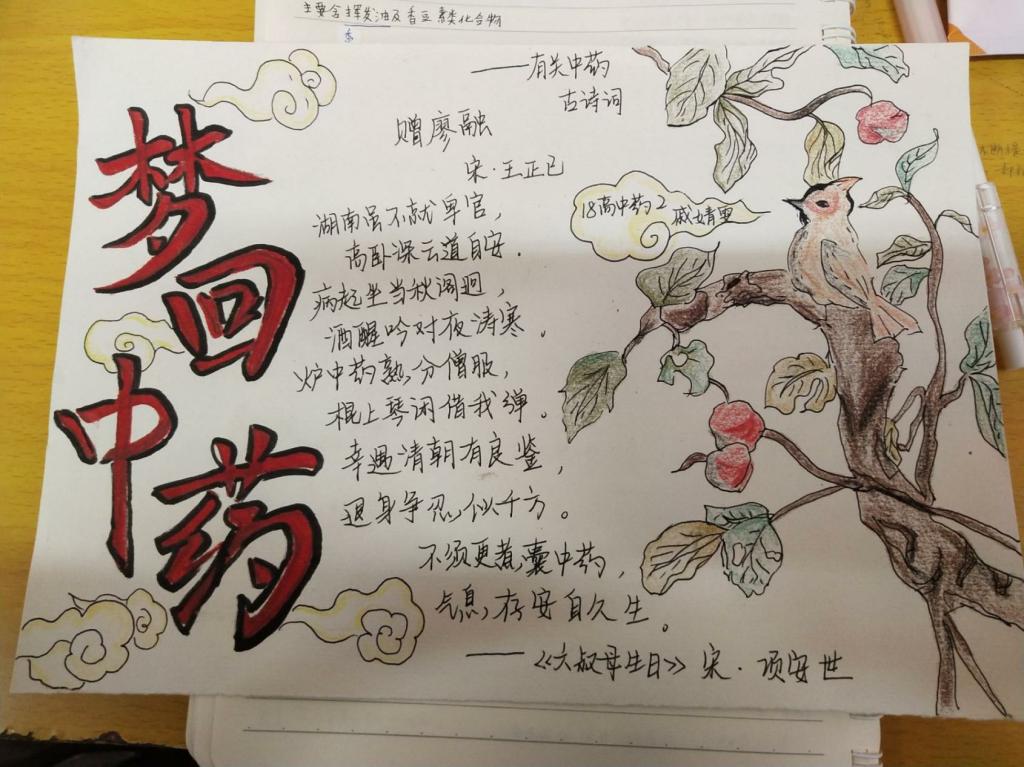 主要含挥发油及香豆素类化合物
梦回中药
——有关中药
古诗词
赠廖融
宋·王正已
18高中药2
湖南虽不就卑官，
高卧深云道自安．
病起坐当秋阁迥，
酒醒吟对夜涛寒。
炉中药熟，分僧服，
棍上琴闲借我弹。
幸遇清朝有良鉴，
退身争忍，似千方。
不须更煮，囊中药，
气息，存安自久生。
——《六叔母生日》宋·项安世